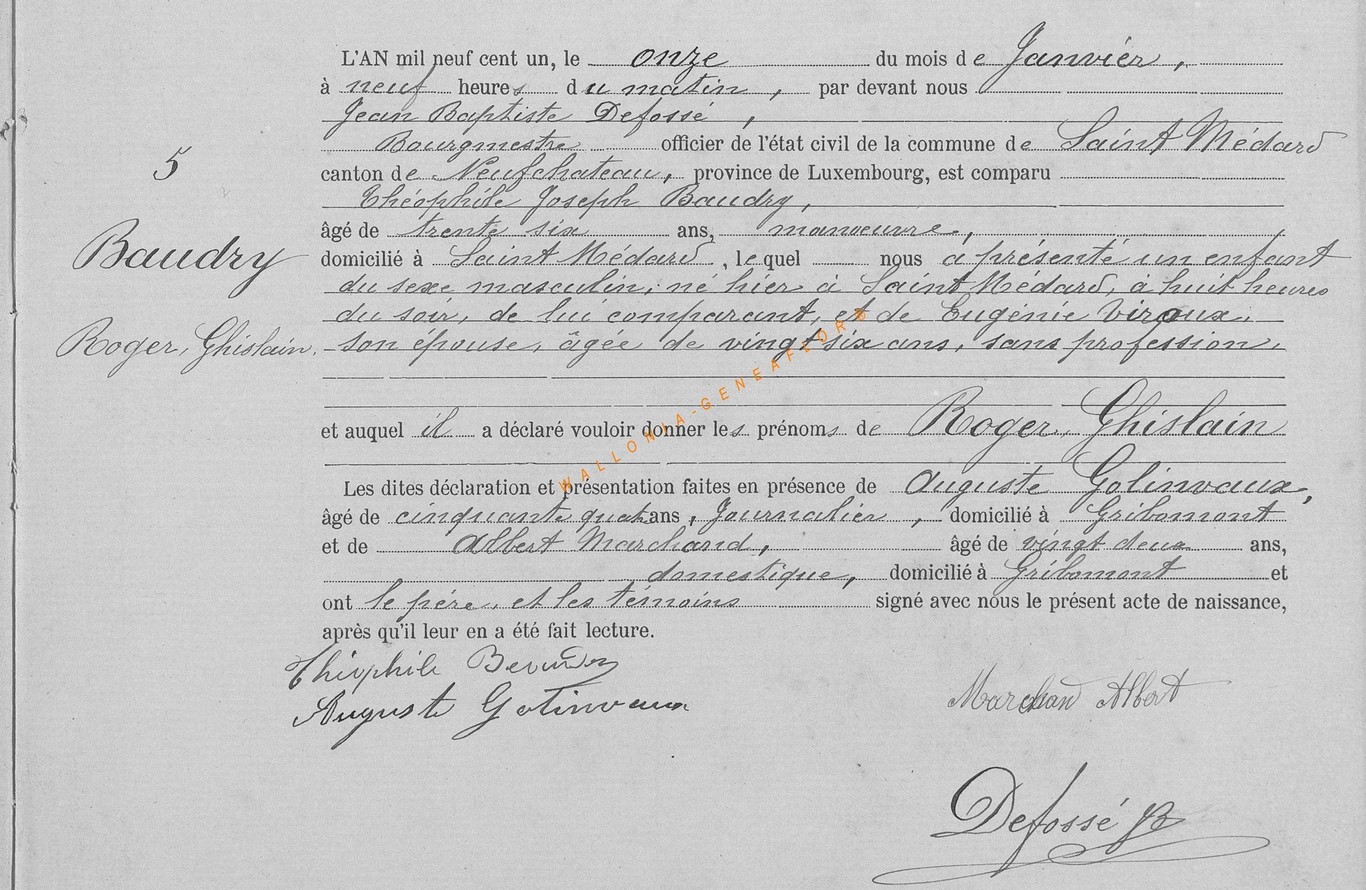 L'AN mil neuf cent un, le onze du mois de Janvier,
à neuf heures du matin, par devant nous
Jean Baptiste Defossé,
Bourgmestre officier de l'état civil de la commune de Saint Médard
5
canton de Neufchateau, province de Luxembourg, est comparu
Théophile Joseph Baudry,
âgé de trente six ans, manœuvre,
Baudry
domicilié à Saint Médard, lequel nous a présenté un enfant
du sexe masculin, né hier à Saint Médard, à huit heures
du soir, de lui comparant, et de Eugénie Viroux,
Roger, Ghislain.
son épouse, âgée de vingt six ans, sans profession,
et auquel il a déclaré vouloir donner les prénoms de Roger, Ghislain
WALLONIA-GENEAFLORE
Les dites déclaration et présentation faites en présence de Auguste Golinvaux,
âgé de cinquante quat ans, Journalier, domicilié à Gribomont
et de Albert Marchand, âgé de vingt deux ans,
domestique, domicilié à Gribomont et
ont le père, et les témoins signé avec nous le présent acte de naissance,
après qu'il leur en a été fait lecture.
Théophile Baudry
Auguste Golinvaux
Marchand Albert
Defossé JB